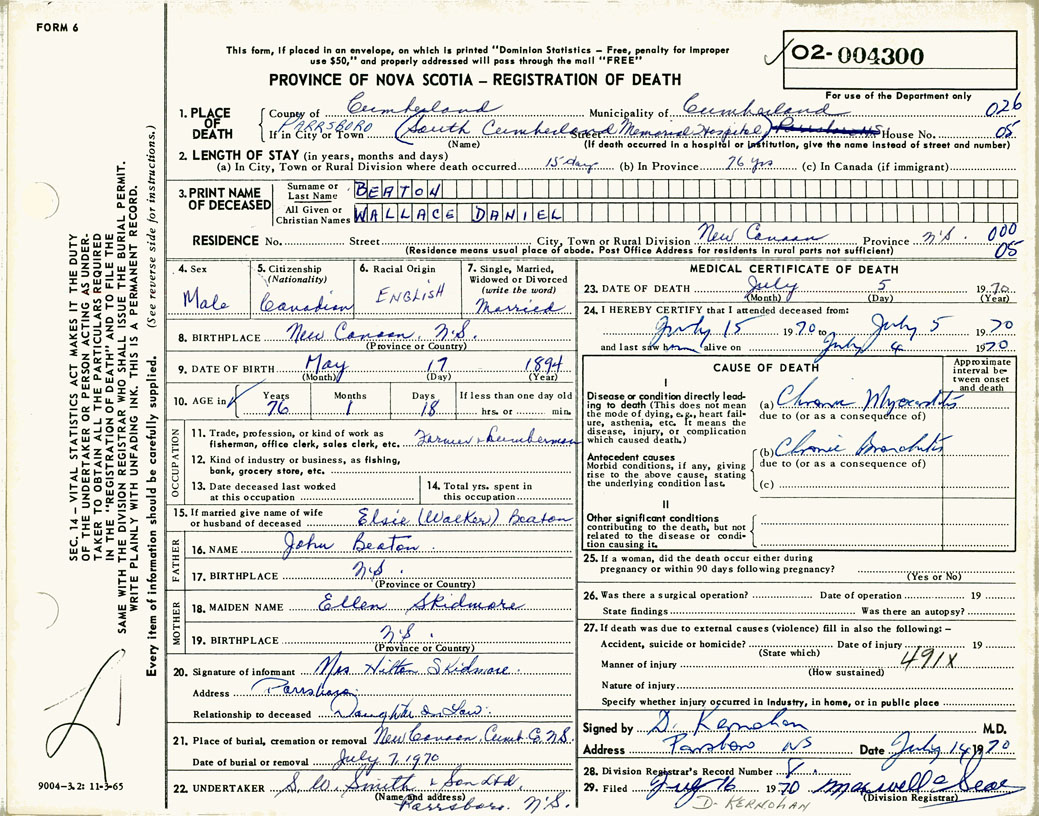 FORM 6
This form, if placed in an envelope, on which is printed "Dominion Statistics – Free, penalty for improper
use $50," and properly addressed will pass through the mail "FREE"
PROVINCE OF NOVA SCOTIA – REGISTRATION OF DEATH
02-004300
For use of the Department only
1. PLACE OF DEATH
County of Cumberland Municipality of Cumberland 026
If in City or Town PARRSBORO (South Cumberland Memorial Hospital) Street House No. 05
(Name) (If death occurred in a hospital or institution, give the name instead of street and number)
2. LENGTH OF STAY (in years, months and days)
(a) In City, Town or Rural Division where death occurred 15 days (b) In Province 76 yrs (c) In Canada (if immigrant)
3. PRINT NAME OF DECEASED
Surname or Last Name BEATON
All Given or Christian Names WALLACE DANIEL
RESIDENCE No. Street City, Town or Rural Division New Canaan Province N.S. 000
(Residence means usual place of abode. Post Office Address for residents in rural parts not sufficient) 05
4. Sex
Male
5. Citizenship
(Nationality)
Canadian
6. Racial Origin
ENGLISH
7. Single, Married,
Widowed or Divorced
(write the word)
Married
8. BIRTHPLACE New Canaan, N.S.
(Province or Country)
9. DATE OF BIRTH May 17 1894
(Month) (Day) (Year)
10. AGE in Years Months Days If less than one day old
76 1 18 hrs. or min.
OCCUPATION
11. Trade, profession, or kind of work as
fisherman, office clerk, sales clerk, etc. Farmer & Lumberman
12. Kind of industry or business, as fishing,
bank, grocery store, etc.
13. Date deceased last worked
at this occupation
14. Total yrs. spent in
this occupation
15. If married give name of wife
or husband of deceased Elsie (Walker) Beaton
FATHER
16. NAME John Beaton
17. BIRTHPLACE N.S.
(Province or Country)
MOTHER
18. MAIDEN NAME Ellen Skidmore
19. BIRTHPLACE N.S.
(Province or Country)
20. Signature of informant Mrs Hilton Skidmore
Address Parrsboro
Relationship to deceased Daughter in Law
21. Place of burial, cremation or removal New Canaan, Cumb. C. N.S.
Date of burial or removal July 7, 1970
22. UNDERTAKER S. W. Smith & Son Ltd.
(Name and address)
Parrsboro, N.S.
MEDICAL CERTIFICATE OF DEATH
23. DATE OF DEATH July 5 1970
(Month) (Day) (Year)
24. I HEREBY CERTIFY that I attended deceased from:
15 1970 to July 5 1970
and last saw him alive on July 4 1970
CAUSE OF DEATH
Approximate
interval be-
tween onset
and death
I
Disease or condition directly lead-
ing to death (This does not mean
the mode of dying, e.g., heart fail-
ure, asthenia, etc. It means the
disease, injury, or complication
which caused death.)
(a) Chronic Myocarditis
due to (or as a consequence of)
Antecedent causes
Morbid conditions, if any, giving
rise to the above cause, stating
the underlying condition last.
(b) Chronic Bronchitis
due to (or as a consequence of)
(c)
II
Other significant conditions
contributing to the death, but not
related to the disease or condi-
tion causing it.
25. If a woman, did the death occur either during
pregnancy or within 90 days following pregnancy?
(Yes or No)
26. Was there a surgical operation? Date of operation 19
State findings Was there an autopsy?
27. If death was due to external causes (violence) fill in also the following: –
Accident, suicide or homicide? Date of injury 19
(State which)
491X
Manner of injury
(How sustained)
Nature of injury
Specify whether injury occurred in industry, in home, or in public place
Signed by D. Kernohan M.D.
Address NS Date July 14 1970
28. Division Registrar's Record Number 8
29. Filed 16 1970 Maxwell
(Division Registrar)
D. KERNOHAN
SEC. 14 – VITAL STATISTICS ACT MAKE IT THE DUTY
OF THE UNDERTAKER OR PERSON ACTING AS UNDER-
TAKER TO OBTAIN ALL THE PARTICULARS REQUIRED
IN THE "REGISTRATION OF DEATH" AND TO FILE THE
SAME WITH THE DIVISION REGISTRAR WHO SHALL ISSUE THE BURIAL PERMIT.
WRITE PLAINLY WITH UNFADING INK. THIS IS A PERMANENT RECORD.
Every item of information should be carefully supplied. (See reverse side for instructions.)
9004-3.2: 11-3-65